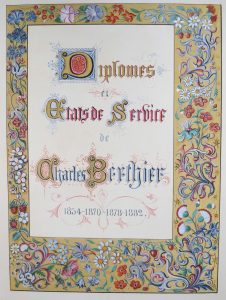 Diplomes
et
Etats de Service
de
Charles Berthier
1854-1870-1878-1882.